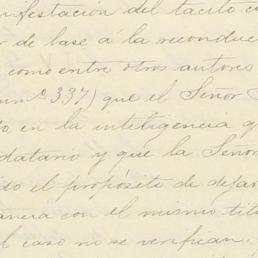 nifestación del tácito co
r de base á la reconduc
como entre otros autores
num.º 337) que el Señor
o en la inteligencia q
datario y que la Señor
do el propósito de dejar
ancia con el mismo tít
l caso no se verifican